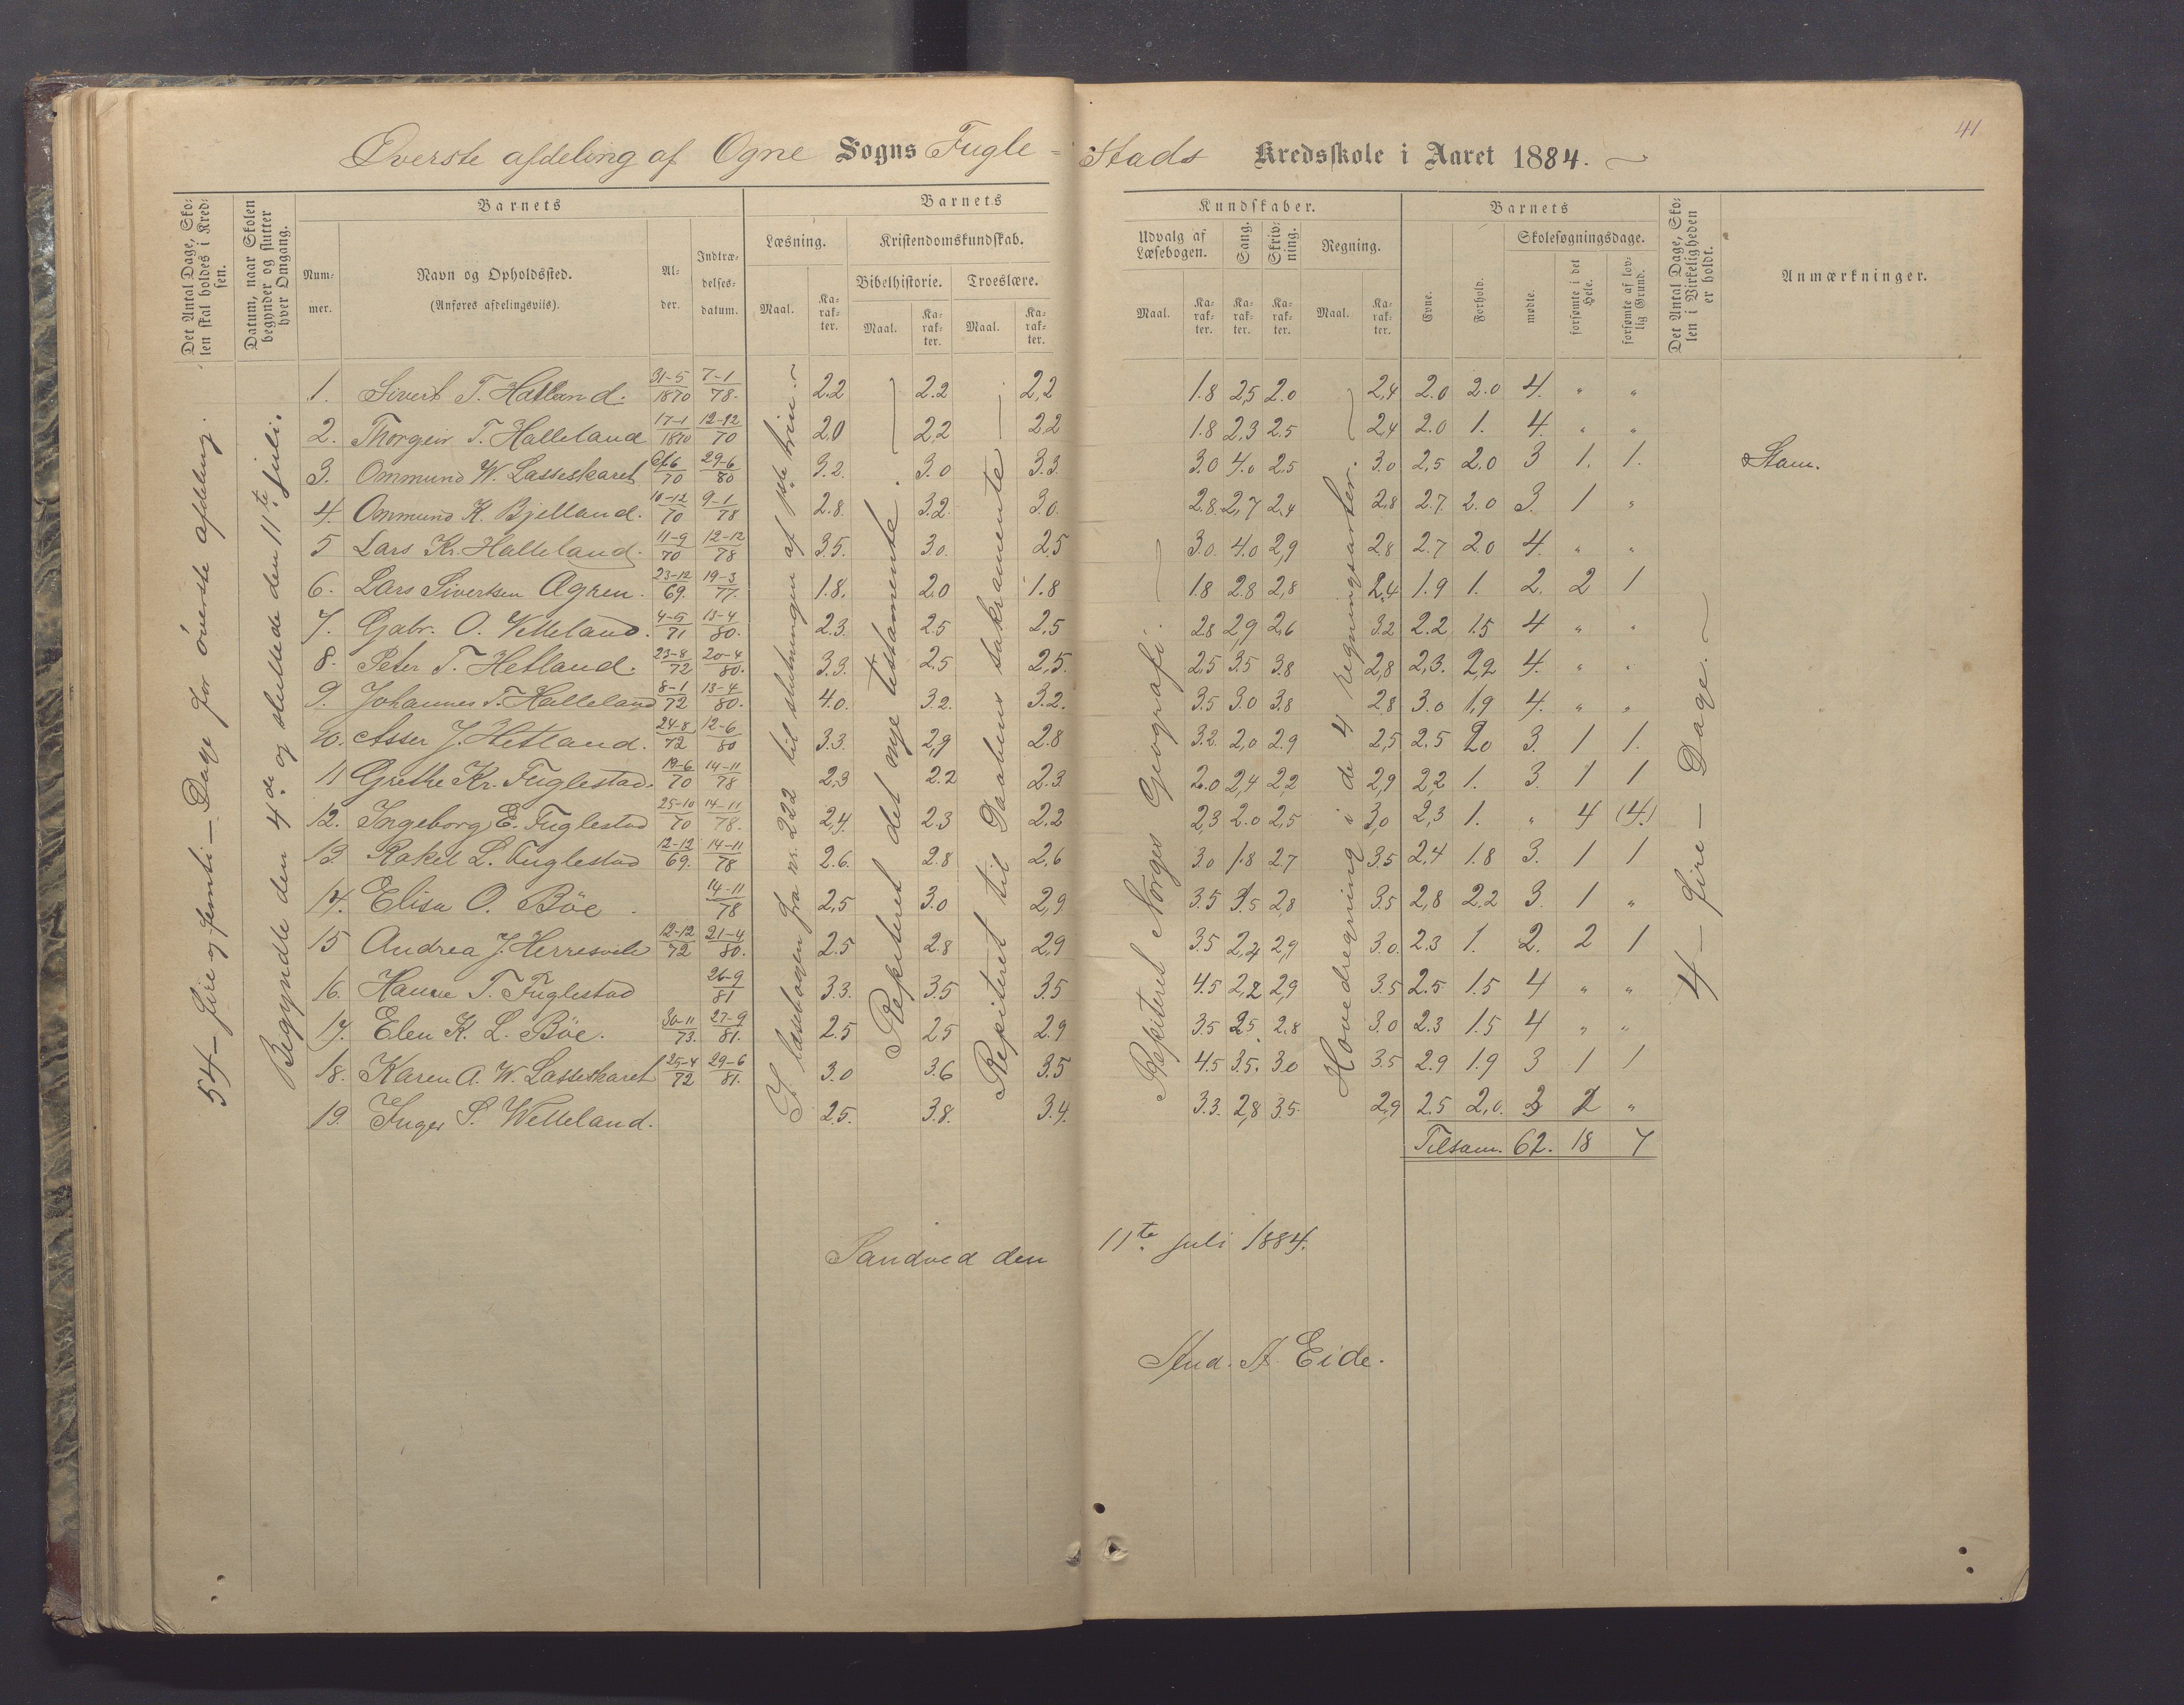 41
Øverste afdeling af Ogne Sogns Fugle-stads Kredsskole i Aaret 1884.
Det Antal Dage, Skolen skal holdes i Kredsen.
Datum, naar Skolen begynder og slutter hver Omgang.
Barnets
Nummer.
Navn og Opholdssted.
(Anføres afdelingsvis).
Alder.
Indtrædelsesdatum.
Barnets Kundskaber.
Læsning.
Maal. Karakter.
Kristendomskundskab.
Bibelhistorie. Troeslære.
Maal. Karakter. Maal. Karakter.
Udvalg af Læsebogen.
Maal. Karakter.
Sang. Karakter.
Skrivning. Karakter.
Regning.
Maal. Karakter.
Barnets
Evne. Forhold.
Skolesøgningsdage.
mødte. forsømte i det Hele. forsømte af lovlig Grund.
Det Antal Dage, Skolen i Virkeligheden er holdt.
Anmærkninger.
54 – fire og femti – Dage for øverste afdeling.
Begyndte den 4de og sluttede den 11te juli.
I læsebogen fra nr. 222 til slutningen af 3die trin.
Repiteret det nye testamente.
Repiteret til Daabens sakramente
Repiteret Norges Geografi.
Hovedregning i de 4 regningsarter.
4 – fire – Dage.
1. Sivert T. Hatland. 31-5 1870 7-1 78. 2.2 2.2 2,2 1.8 2,5 2.0 2,4 2.0 2.0 4. " "
2. Thorgeir T. Halleland 17-1 1870 12-12 70 2,0 2,2 2,2 1.8 2,3 2.5 2,4 2.0 1. 4. " "
3. Ommund W. Lasseskaret 70 29-6 80 3.2. 3.0 3.3. 3.0 4.0 2,5 3.0 2,5 2.0 3 1. 1. Stam.
4. Ommund K. Bjelland. 10-12 70 9-1 78 2.8. 3.2. 3.0. 2.8. 2,7 2,4 2,8 2.7. 2.0 3. 1 "
5 Lars Kr. Halleland. 11-9 70 12-12 78 3.5. 3.0. 2.5 3.0. 4.0 2,9 2.8 2.7 2.0 4. " "
6. Lars Sivertsen Agren. 23-12 69. 19-3 77. 1.8. 2.0 1.8 1.8 2.8 2,8 2,4 1.9 1. 2. 2 1
7. Gabr. O. Vetteland. 4-5 71 13-4 80. 2.3. 2.5 2,5 2.8 2,9 2,6 3.2 2.2 1.5 4 " "
8. Peter T. Hetland. 23-8 72 20-4 80. 3.3. 2.5 2,5. 2.5 3.5 3.8 2,8 2,3. 2,2 4. " "
9. Johannes T. Halleland 8-1 72 13-4 80. 4.0. 3.2. 3.2. 3.5 3.0 3,8 2.8 3.0 1,9 4. " "
10. Asser J. Hetland. 24-8 72 12-6 80 3.3. 2,9 2.8 3.2. 2,0 2.9 2,5 2.5 2.0 3. 1 1.
11 Grethe Kr. Fuglestad. 19-6 70 14-11 78 2,3 2.2 2.3. 2.0 2,4 2,2 2,9 2,2 1. 3. 1 1
12. Ingeborg E. Fuglestad 25-10 70 14-11 78. 2,4. 2.3 2.2 2,3 2.0 2,5 3,0 2,3 1. " 4 (4.)
13. Rakel L. Fuglestad 12-12 69. 14-11 78 2.6. 2.8 2,6 3.0 1.8 2.7 3.5 2,4 1.8 3. 1 1
14. Elisa O. Böe. 14-11 78 2,5 3.0 2,9 3.5 3.5 2,8 3.5 2,8 2.2 3. 1 "
15 Andrea J. Herresvele 12-12 72 21-4 80. 2.5 2.8 2,9 3.5 2,4 2,9 3.0. 2.3 1. 2. 2 1
16. Hanne T. Fuglestad 26-9 81 3.3. 3.5 3.5 4.5 2,2 2,9 3.5 2.5 1.5 4 " "
17. Elen K. L. Böe. 30-11 73. 27-9 81. 2.5 2.5 2.9 3.5 2.5 2.8 3.0 2.3 1.5 4 " "
18. Karen A. W. Lasseskaret 25-4 72 29-6 81. 3.0 3.6 3.5 4.5 3.5. 3.0 3.5 2.9 1.9 3 1 1
19. Inger S. Wetteland. 2.5. 3.8. 3.4. 3.3. 2,8 3.5 2,9 2.5 2,0. 3 2 "
Tilsam. 62. 18 7
Sandved den 11te juli 1884.
Stud. A. Eide.